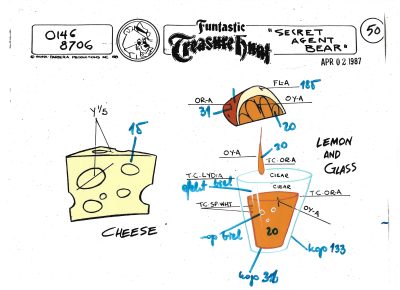 0146
8706
© HANNA BARBERA PRODUCTIONS INC 198
Funtastic
Treasure Hunt
"SECRET
AGENT
BEAR"
50
APR 02 1987
Y 1/5
15
CHEESE
FL-A 185
OR-A
OY-A
31
20
30
OY-A
T.C. OR-A
LEMON
AND
GLASS
T.C. LYDIA
CLEAR
CLEAR
T.C. OR-A
T.C. SP. WHT
OY-A
op biel
20
kop 133
kop 31